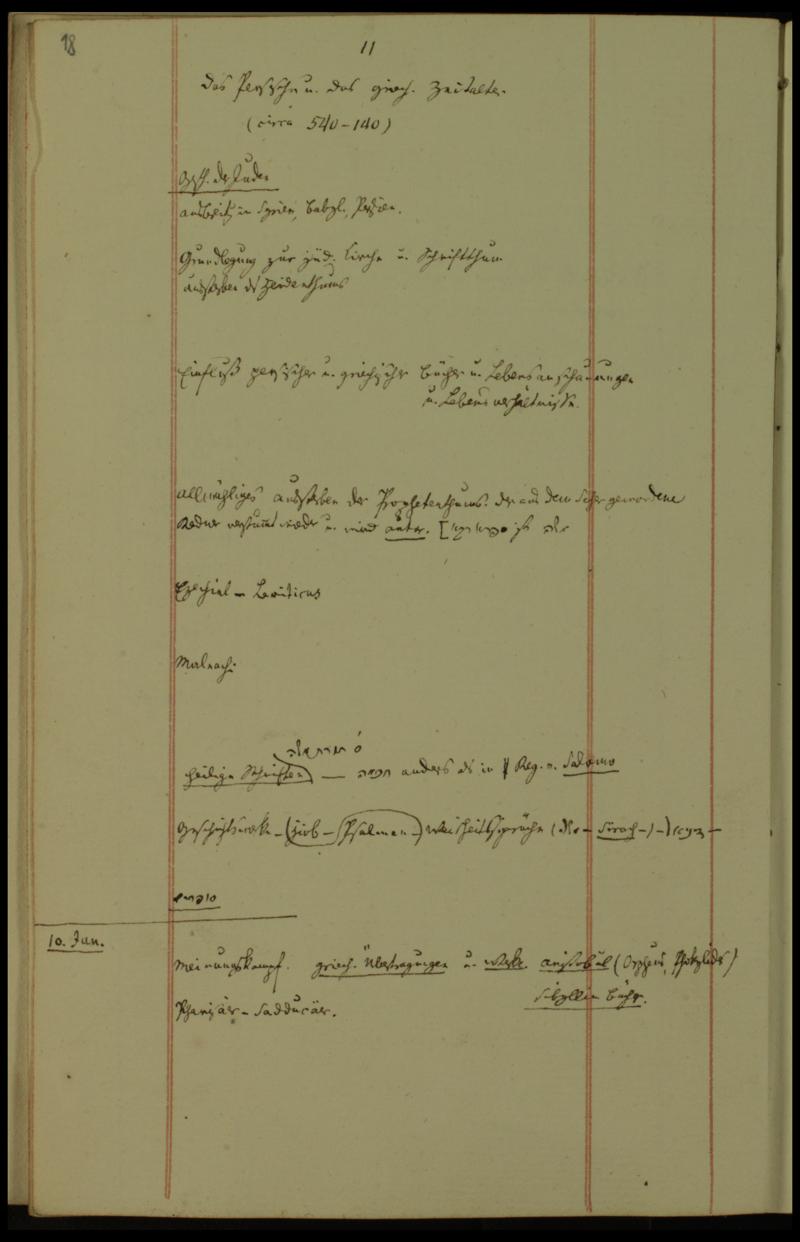 18
11
Das Persische u. das griech. Zeitalter.
(circa 540–140)
Gesch. der Juden
Ausbreitg in Syrien, Babyl., Persien.
Grundlegung zur jüd. Kirche u. Schriftthum
Aussterben des Heidenthums
Einfluß persischer u. griechischer Bücher u. Lebensanschauungen
u. Lebensverhältnisse.
Allmähliges Aussterben des Prophetenthums. Der aus dem Seher gewordene
Redner verstummt wieder u. wird Autor. [ ist
Ezechiel – Leviticus
Maleachi
heilige Schriften — anders als in Reg. u. Salomo
Geschichtswerke – (Hiob – Psalmen –) Weisheitssprüche ( – Sirach –) –
סופרים
10. Jun.
Meinungskampf. griech. Übertragungen u. Werke. Aristobul (Orpheus, Phokylides)
Sibyllin. Bücher.
Pharisäer – Sadducäer.